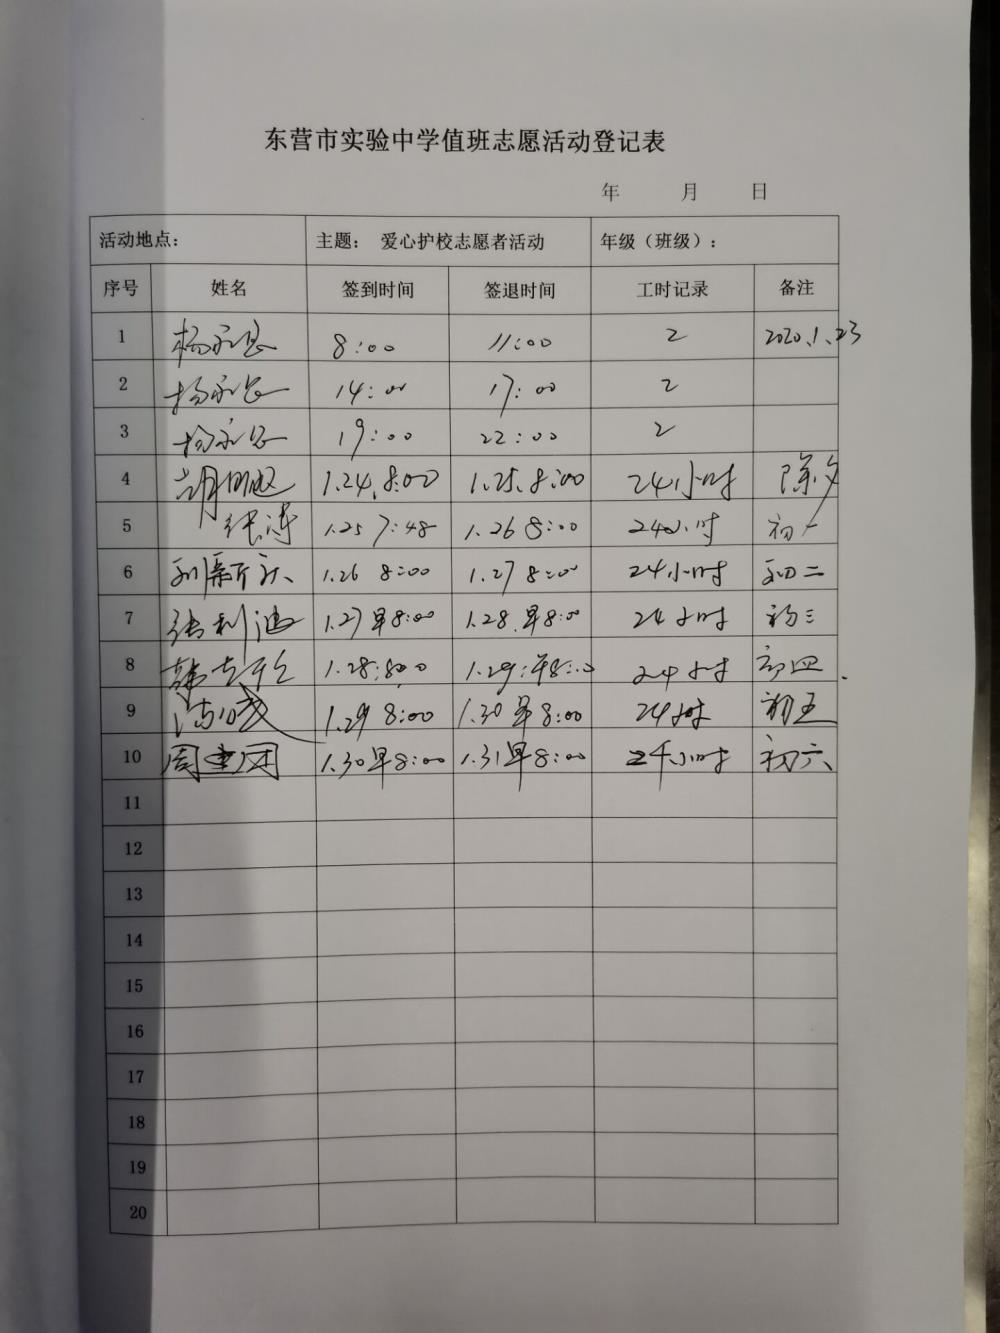 东营市实验中学值班志愿活动登记表
年 月 日
活动地点： 主题： 爱心护校志愿者活动 年级（班级）：
序号 姓名 签到时间 签退时间 工时记录 备注
1 8:00 11:00 2 2020.1.23
2 14:00 17:00 2
3 19:00 22:00 2
4 1.24.8:00 1.25.8:00 24小时 除夕
5 张涛 1.25 7:48 1.26 8:00 24小时 初一
6 1.26 8:00 1.27 8:00 24小时 初二
7 张利迪 1.27早8:00 1.28.早8:00 24小时 初三
8 1.29.早8:00 24小时 初四
9 1.29 8:00 1.30早8:00 24小时 初五
10 周建国 1.30早8:00 1.31早8:00 24小时 初六
11
12
13
14
15
16
17
18
19
20